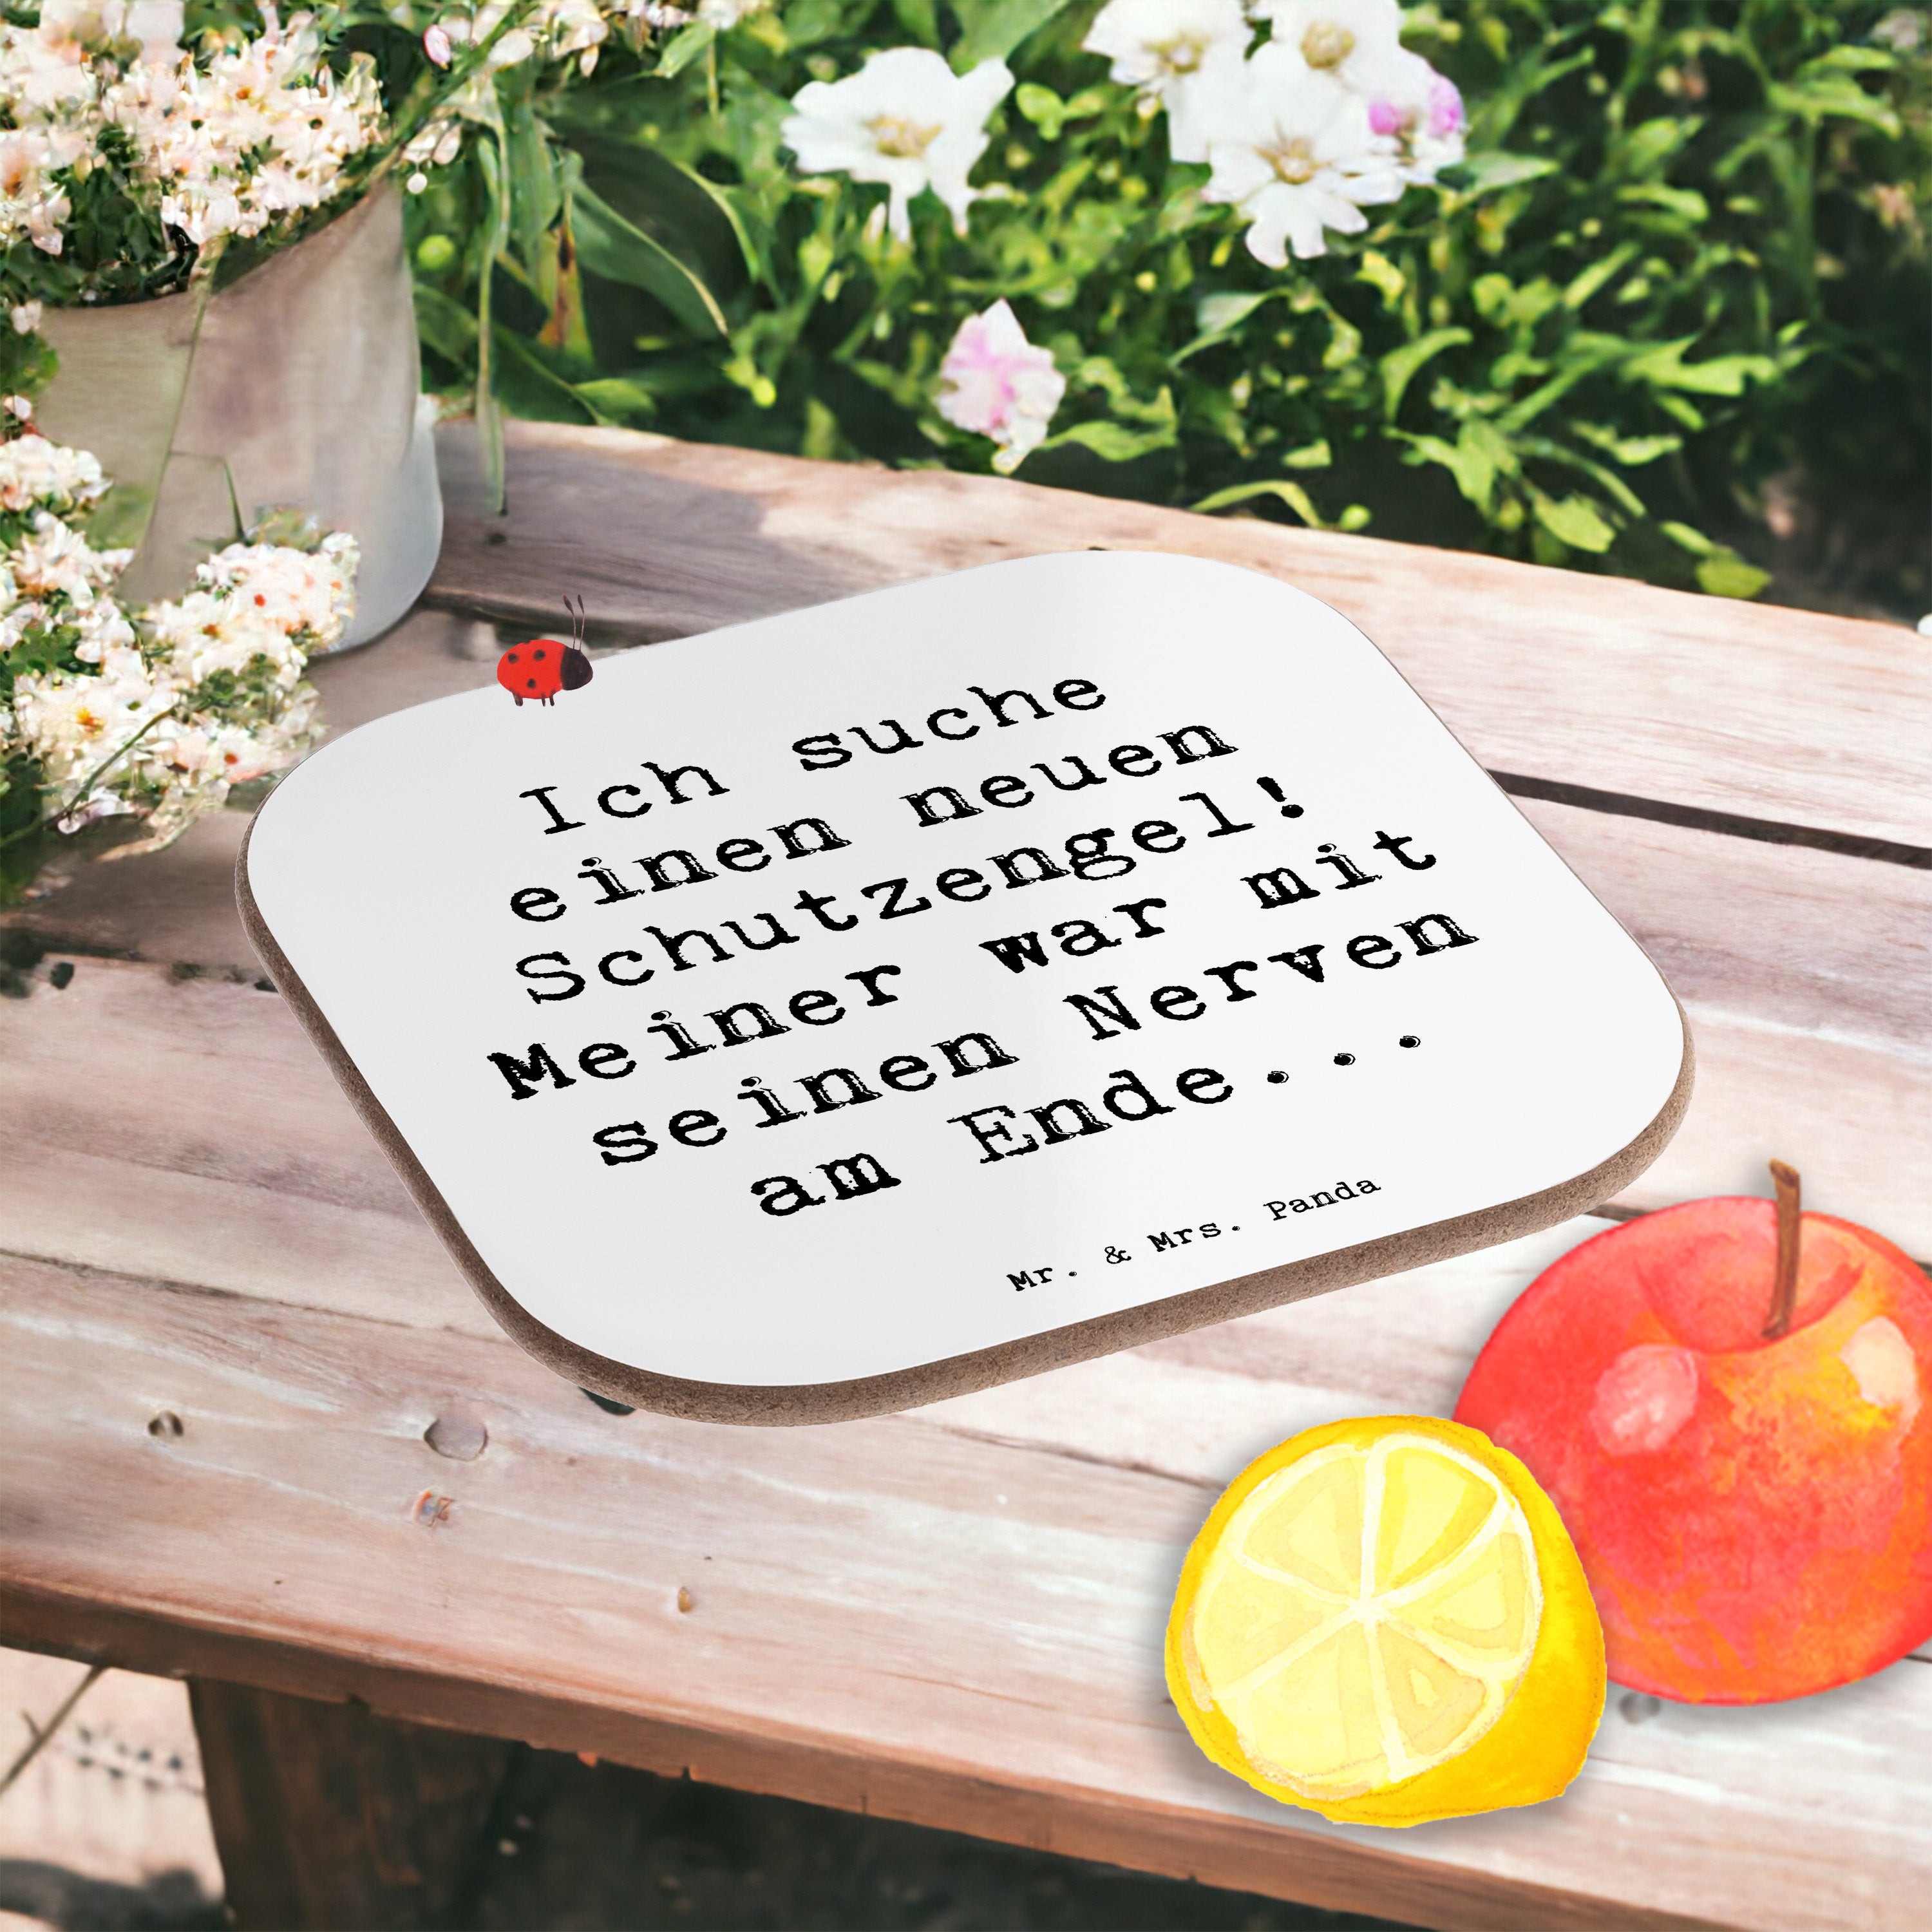 Ich suche
einen neuen
Schutzengel!
Meiner war mit
seinen Nerven
am Ende...
Mr. & Mrs. Panda